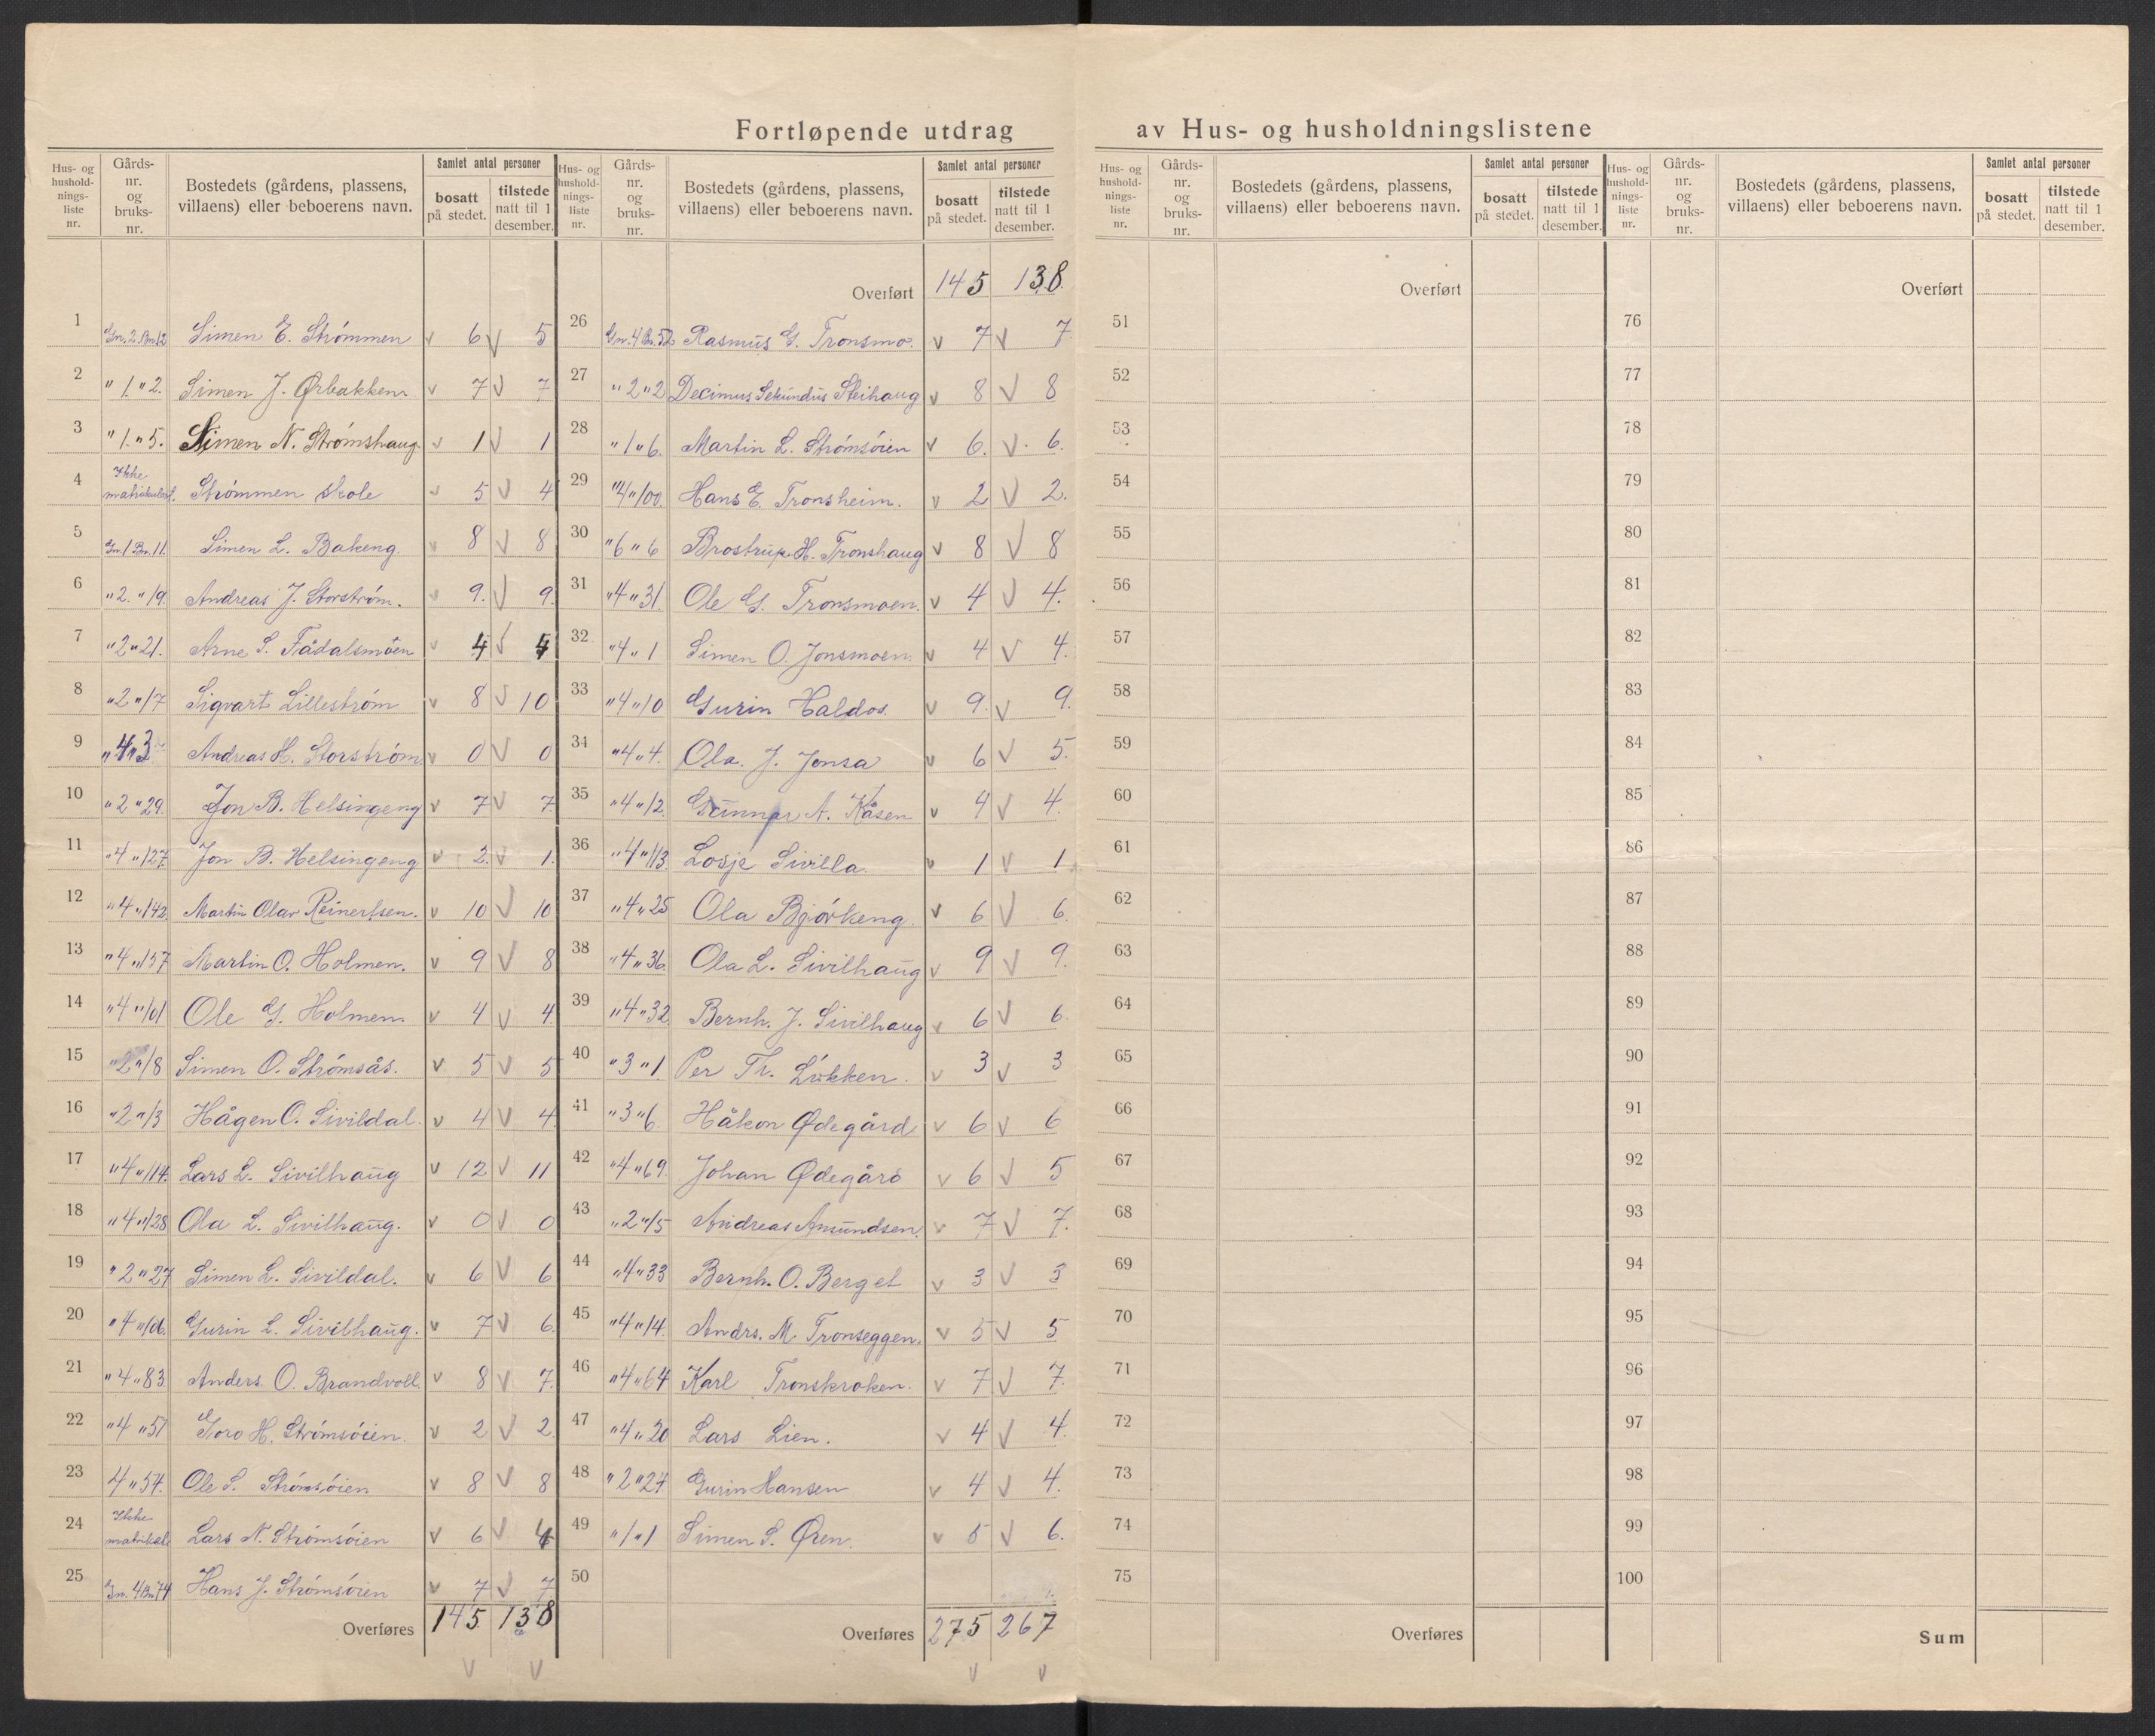 Fortløpende utdrag av Hus- og husholdningslistene
Hus- og hushold-nings-liste nr. | Gårds-nr. og bruks-nr. | Bostedets (gårdens, plassens, villaens) eller beboerens navn. | Samlet antal personer | bosatt på stedet. | tilstede natt til 1 desember.
1 Gn. 2 Bn 12 Simen E. Strømmen v 6 v 5
2 " 1 " 2. Simen J. Ørbakken v 7 v 7
3 " 1 " 5. Simen N. Strømshaug v 1 v 1
4 Ikke matrikulert. Strømmen skole v 5 v 4
5 Gn. 1 Bn. 11. Simen L. Bakeng. v 8 v 8
6 " 2. " 19. Andreas J. Storstrøm. v 9. v 9.
7 " 2 " 21. Arne S. Fådalsmoen v 4 v 4
8 " 2 " 17 Sigvart Lillestrøm v 8 v 10
9 " 4 " 3 Andreas H. Storstrøm v 0 v 0
10 " 2 " 29. Jon B. Helsingeng v 7 v 7.
11 " 4 " 127 Jon B. Helsingeng v 2. v 1.
12 " 4 " 142. Martin Olav Reinertsen. v 10 v 10
13 " 4 " 157 Martin O. Holmen. v 9 v 8
14 " 4 " 101 Ole G. Holmen. v 4 v 4.
15 " 2 " 18 Simen O. Strømsås. v 5 v 5
16 " 2 " 13 Hågen O. Sivildal. v 4 v 4.
17 " 4 " 114. Lars L. Sivilhaug v 12 v 11
18 " 4 " 128 Ola L. Sivilhaug. v 0 v 0
19 " 2 " 27 Simen L. Sivildal. v 6 v 6
20 " 4 " 106. Gurin L. Sivilhaug. v 7 v 6.
21 " 4 " 83. Anders. O. Brandvoll. v 8 v 7.
22 " 4 " 51 Goro H. Strømsøien. v 2 v 2.
23 4 " 54. Ole S. Strømsøien v 8 v 8
24 Ikke Lars N. Strømsøien v 6 v 4
25 Gn. 4 Bn 74 Hans J. Strømsøien v 7 v 7
Overføres 145 138
v v
Hus- og hushold-nings-liste nr. | Gårds-nr. og bruks-nr. | Bostedets (gårdens, plassens, villaens) eller beboerens navn. | Samlet antal personer | bosatt på stedet. | tilstede natt til 1 desember.
Overført 145 138.
26 Gn. 4 Bn. 52 Rasmus G. Tronsmo. v 7 v 7.
27 " 2 " 2 Decimus Sekundus Steihaug v 8 v 8
28 " 1 " 6. Martin L. Strømsøien v 6. v 6.
29 " 4 " 100. Hans E. Tronsheim. v 2 v 2.
30 " 6 " 6 Brostrup H. Tronshaug v 8 v 8
31 " 4 " 31. Ole G. Tronsmoen. v 4 v 4.
32 " 4 " 1 Simen O. Jonsmoen. v 4 v 4.
33 " 4 " 10 Gurin Haldos. v 9. v 9.
34 " 4 " 4. Ola. J. Jonsa v 6 v 5.
35 " 4 " 12. Gunnar A. Kåsen v 4 v 4.
36 " 4 " 113. Losje Sivilla. v 1 v 1.
37 " 4 " 25 Ola Bjørkeng. v 6 v 6.
38 " 4 " 36. Ola L. Sivilhaug v 9 v 9.
39 " 4 " 32. Bernh. J. Sivilhaug v 6 v 6.
40 " 3 " 1 Per Tr. Løkken. v 3 v 3
41 " 3 " 6. Håkon Ødegård v 6 v 6
42 " 4 " 69. Johan Ødegård v 6 v 5
43 " 2 " 15 Andreas Amundsen. v 7 v 7.
44 " 4 " 33 Bernh. O. Berget v 3 v 3
45 " 4 " 14. Andrs. M. Tronseggen. v 5 v 5.
46 " 4 " 64 Karl Tronskroken. v 7 v 7.
47 " 4 " 20 Lars Lien. v 4 v 4.
48 " 2 " 24 Gurin Hansen v 4 v 4.
49 " 1 " 1 Simen S. Øren. v 5 v 6.
50
Overføres 275 267
v v
Hus- og hushold-nings-liste nr. | Gårds-nr. og bruks-nr. | Bostedets (gårdens, plassens, villaens) eller beboerens navn. | Samlet antal personer | bosatt på stedet. | tilstede natt til 1 desember.
Overført
51
52
53
54
55
56
57
58
59
60
61
62
63
64
65
66
67
68
69
70
71
72
73
74
75
Overføres
Hus- og hushold-nings-liste nr. | Gårds-nr. og bruks-nr. | Bostedets (gårdens, plassens, villaens) eller beboerens navn. | Samlet antal personer | bosatt på stedet. | tilstede natt til 1 desember.
Overført
76
77
78
79
80
81
82
83
84
85
86
87
88
89
90
91
92
93
94
95
96
97
98
99
100
Sum